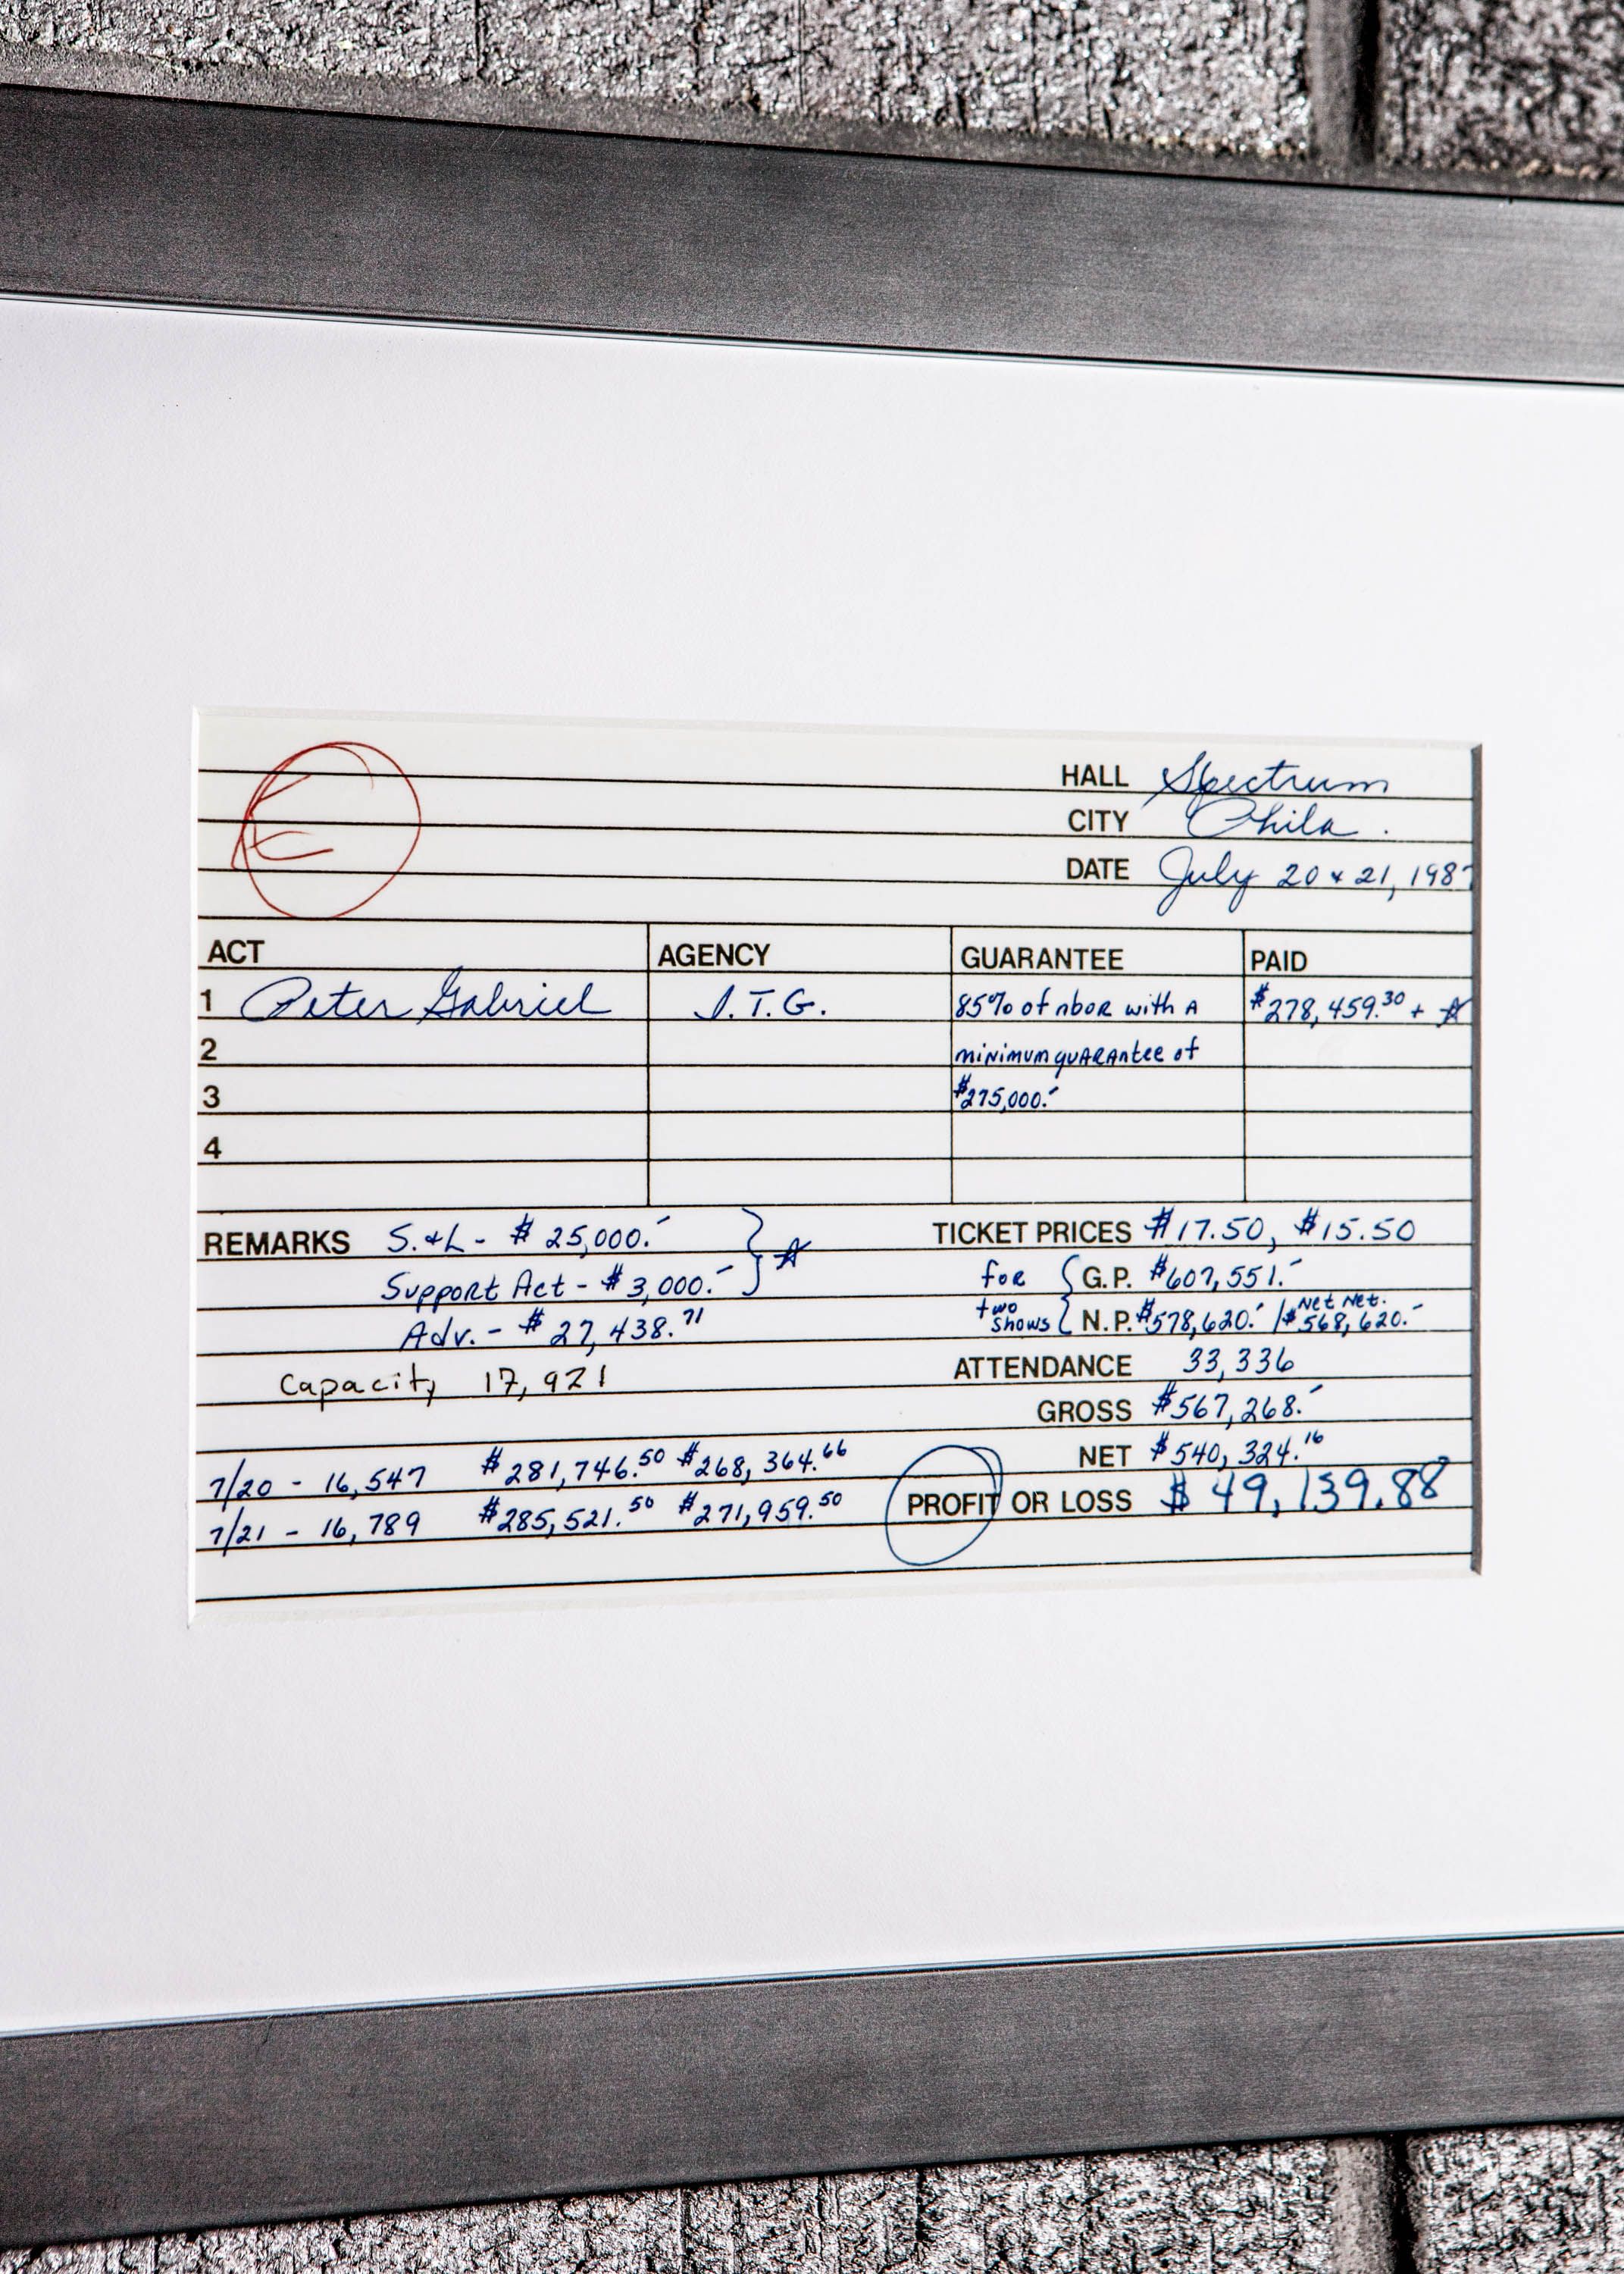 E
HALL Spectrum
CITY Phila.
DATE July 20 & 21, 1987
ACT AGENCY GUARANTEE PAID
1 Peter Gabriel I.T.G. 85% of nbor with a $278,459.30 + ☆
2 minimum guarantee of
3 $275,000.-
4
REMARKS S.&L - $25,000.- } ☆ TICKET PRICES $17.50, $15.50
Support Act - $3,000.- for { G.P. $607,551.-
Adv. - $27,438.71 two shows { N.P. $578,620.- / Net Net. $568,620.-
Capacity 17,921 ATTENDANCE 33,336
GROSS $567,268.-
7/20 - 16,547 $281,746.50 $268,364.66 NET $540,324.16
7/21 - 16,789 $285,521.50 $271,959.50 PROFIT OR LOSS $49,139.88